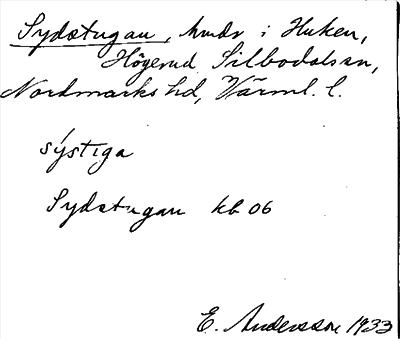 Sydstugan, hmdr i Huken,
Högerud Silbodals sn,
Nordmarks hd, Värml. l.
sýstiga
Sydstugan kb 06
E. Andersson 1933